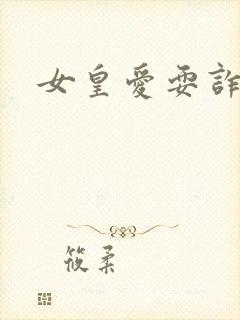 女皇愛耍詐
筱柔